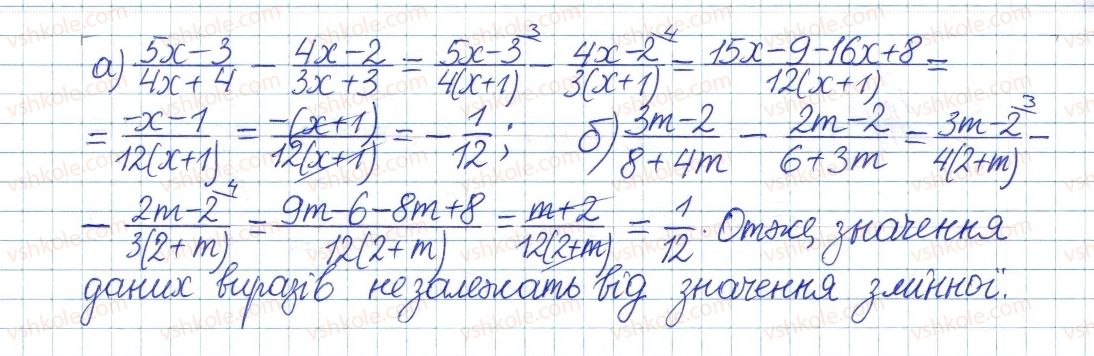 а) (5x−3)/(4x+4) − (4x−2)/(3x+3) = (5x−3)/(4(x+1)) ³ − (4x−2)/(3(x+1)) ⁴ = (15x−9−16x+8)/(12(x+1)) =
= (−x−1)/(12(x+1)) = (−(x+1))/(12(x+1)) = −1/12; б) (3m−2)/(8+4m) − (2m−2)/(6+3m) = (3m−2)/(4(2+m)) ³ −
− (2m−2)/(3(2+m)) ⁴ = (9m−6−8m+8)/(12(2+m)) = (m+2)/(12(2+m)) = 1/12. Отже, значення
даних виразів не залежать від значення змінної.